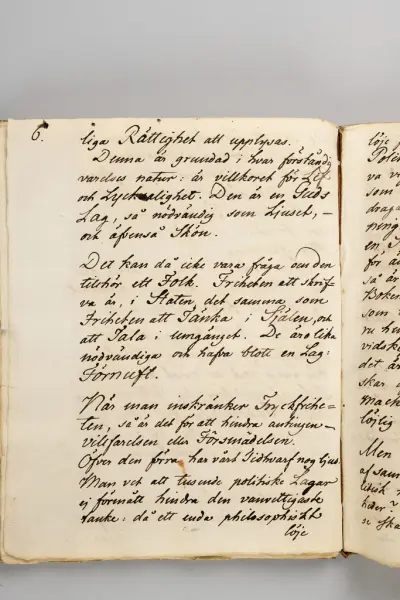 6.
liga Rättighet att upplysas.
Denna är grundad i hvar förståndig
varelses natur: är villkoret för Lif-
och Lycksalighet. Den är en Guds
Lag, så nödvändig som Ljuset, –
och äfvenså Skön.
Det kan då icke vara fråga om den
tilhör ett Folk. Friheten att skrif-
va är, i Staten det samma som
Friheten att Tänka i Själen, och
att Tala i umgänget. De äro lika
nödvändiga och hafva blott en Lag:
Förnuft.
När man inskränker Tryckfrihe-
ten, så är det för att hindra antingen –
villfarelsen eller Försmädelsen.
Öfver den förra, har vårt Tidhvarf nog ljus.
Man vet att tusende politiske Lagar
ej förmått hindra den vanvettigaste
tanke: då ett enda philosophiskt
löje
löje
Polit
va v
som
draga
ning
en
för
så är
Boken
som
ru hin
vidsk
det är
skar
mach
löjlig
Men
af sam